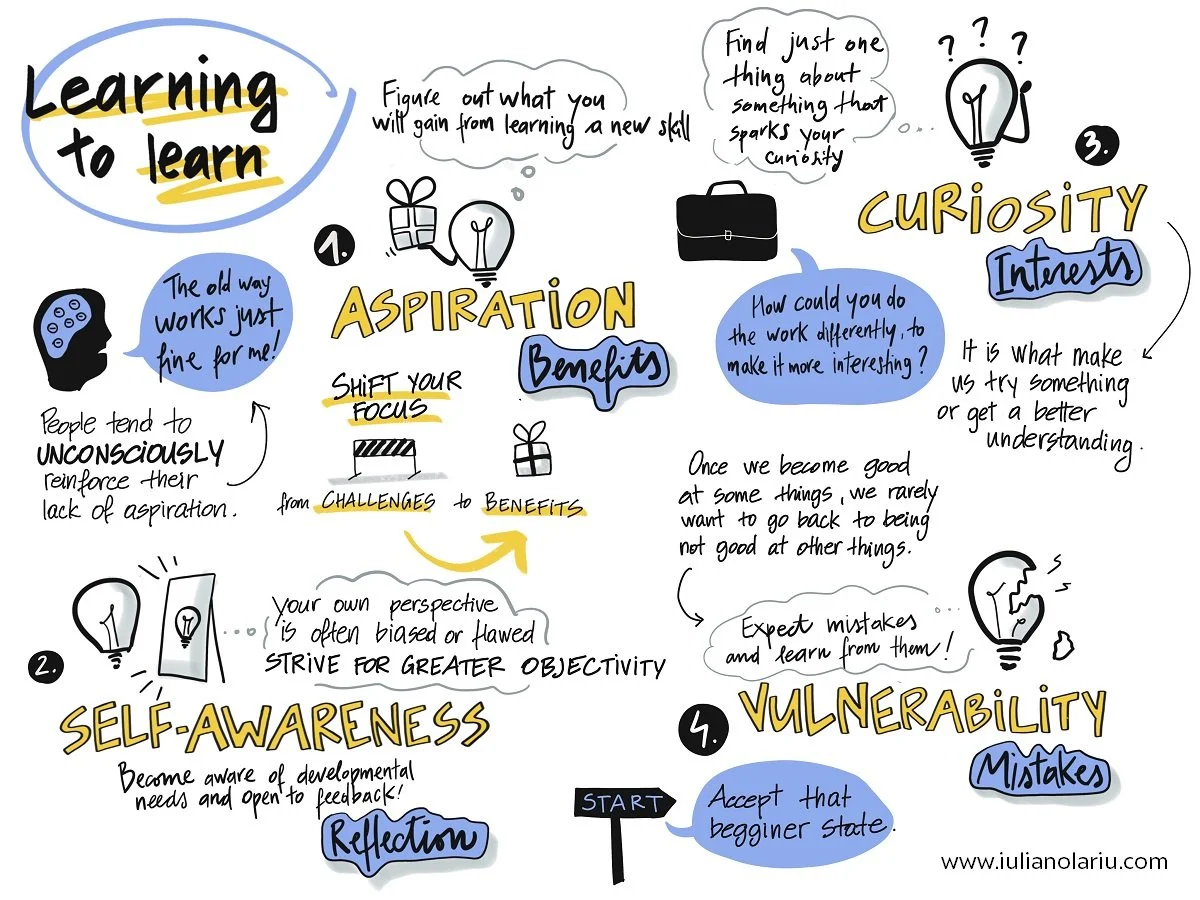 Learning
to learn
Figure out what you
will gain from learning a new skill
1.
ASPIRATION
Benefits
The old way
works just
fine for me!
People tend to
UNCONSCIOUSLY
reinforce their
lack of aspiration.
SHIFT YOUR
FOCUS
from CHALLENGES to BENEFITS
2.
your own perspective
is often biased or flawed
STRIVE FOR GREATER OBJECTIVITY
SELF-AWARENESS
Become aware of developmental
needs and open to feedback!
Reflection
Find just one
thing about
something that
sparks your
curiosity
? ? ?
3.
CURIOSITY
Interests
It is what make
us try something
or get a better
understanding.
How could you do
the work differently, to
make it more interesting?
Once we become good
at some things, we rarely
want to go back to being
not good at other things.
Expect mistakes
and learn from them!
4.
VULNERABILITY
Mistakes
START
Accept that
begginer state.
www.iulianolariu.com